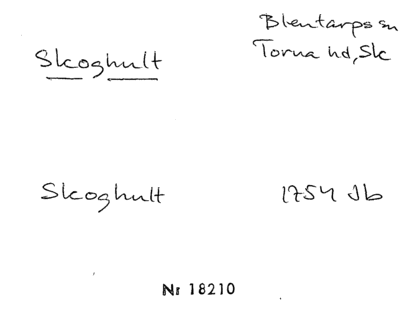 Blentarps sn
Skoghult Torna hd, Sk
Skoghult 1754 Jb
Nr 18210